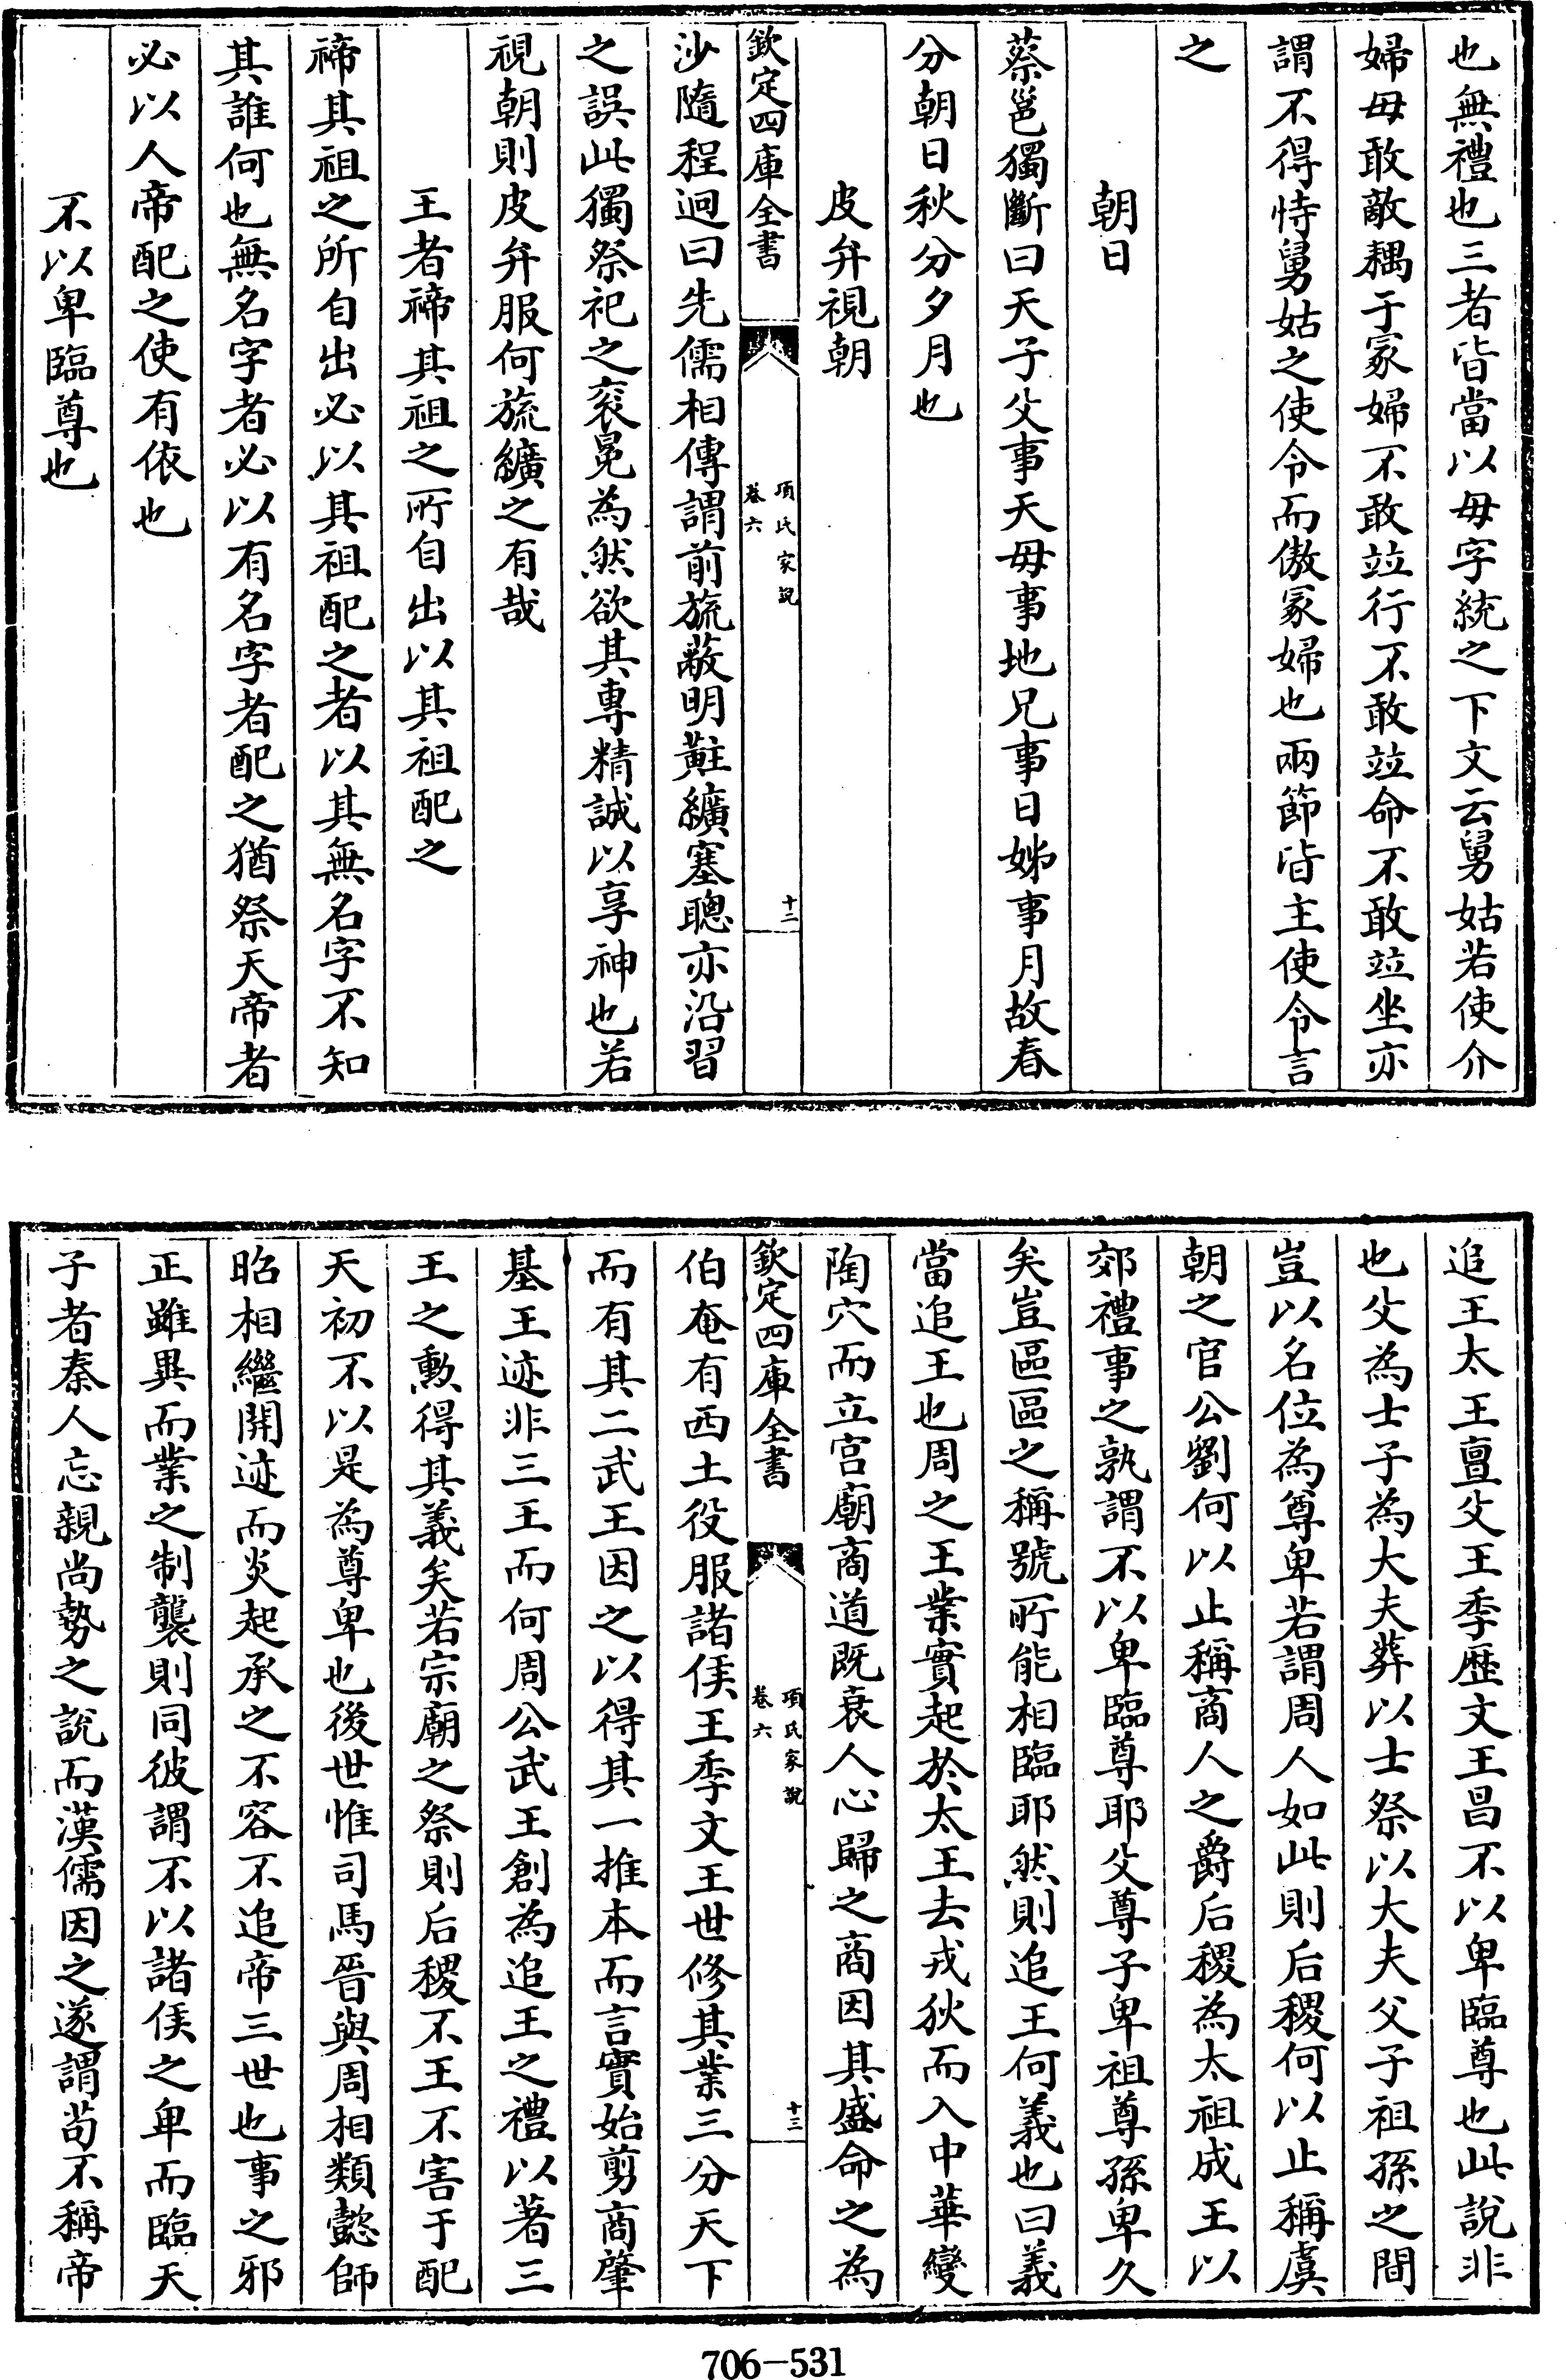 也無禮也三者皆當以毋字統之下文云舅姑若使介
婦毋敢敵耦于冢婦不敢竝行不敢竝命不敢竝坐亦
謂不得恃舅姑之使令而傲冢婦也兩節皆主使令言
之
朝日
蔡邕獨斷曰天子父事天母事地兄事日姊事月故春
分朝日秋分夕月也
皮弁視朝
欽定四庫全書
項氏家說
卷六
十二
沙隨程迥曰先儒相傳謂前旒蔽明黈纊塞聰亦沿習
之誤此獨祭祀之袞冕為然欲其專精誠以享神也若
視朝則皮弁服何旒纊之有哉
王者禘其祖之所自出以其祖配之
禘其祖之所自出必以其祖配之者以其無名字不知
其誰何也無名字者必以有名字者配之猶祭天帝者
必以人帝配之使有依也
不以卑臨尊也
追王太王亶父王季歷文王昌不以卑臨尊也此說非
也父為士子為大夫葬以士祭以大夫父子祖孫之間
豈以名位為尊卑若謂周人如此則后稷何以止稱虞
朝之官公劉何以止稱商人之爵后稷為太祖成王以
郊禮事之孰謂不以卑臨尊耶父尊子卑祖尊孫卑久
矣豈區區之稱號所能相臨耶然則追王何義也曰義
當追王也周之王業實起於太王去戎狄而入中華變
陶穴而立宮廟商道既衰人心歸之商因其盛命之為
欽定四庫全書
項氏家說
卷六
十三
伯奄有西土役服諸侯王季文王世修其業三分天下
而有其二武王因之以得其一推本而言實始剪商肇
基王迹非三王而何周公武王創為追王之禮以著三
王之勳得其義矣若宗廟之祭則后稷不王不害于配
天初不以是為尊卑也後世惟司馬晉與周相類懿師
昭相繼開迹而炎起承之不容不追帝三世也事之邪
正雖異而業之制襲則同彼謂不以諸侯之卑而臨天
子者秦人忘親尚勢之說而漢儒因之遂謂苟不稱帝
706-531